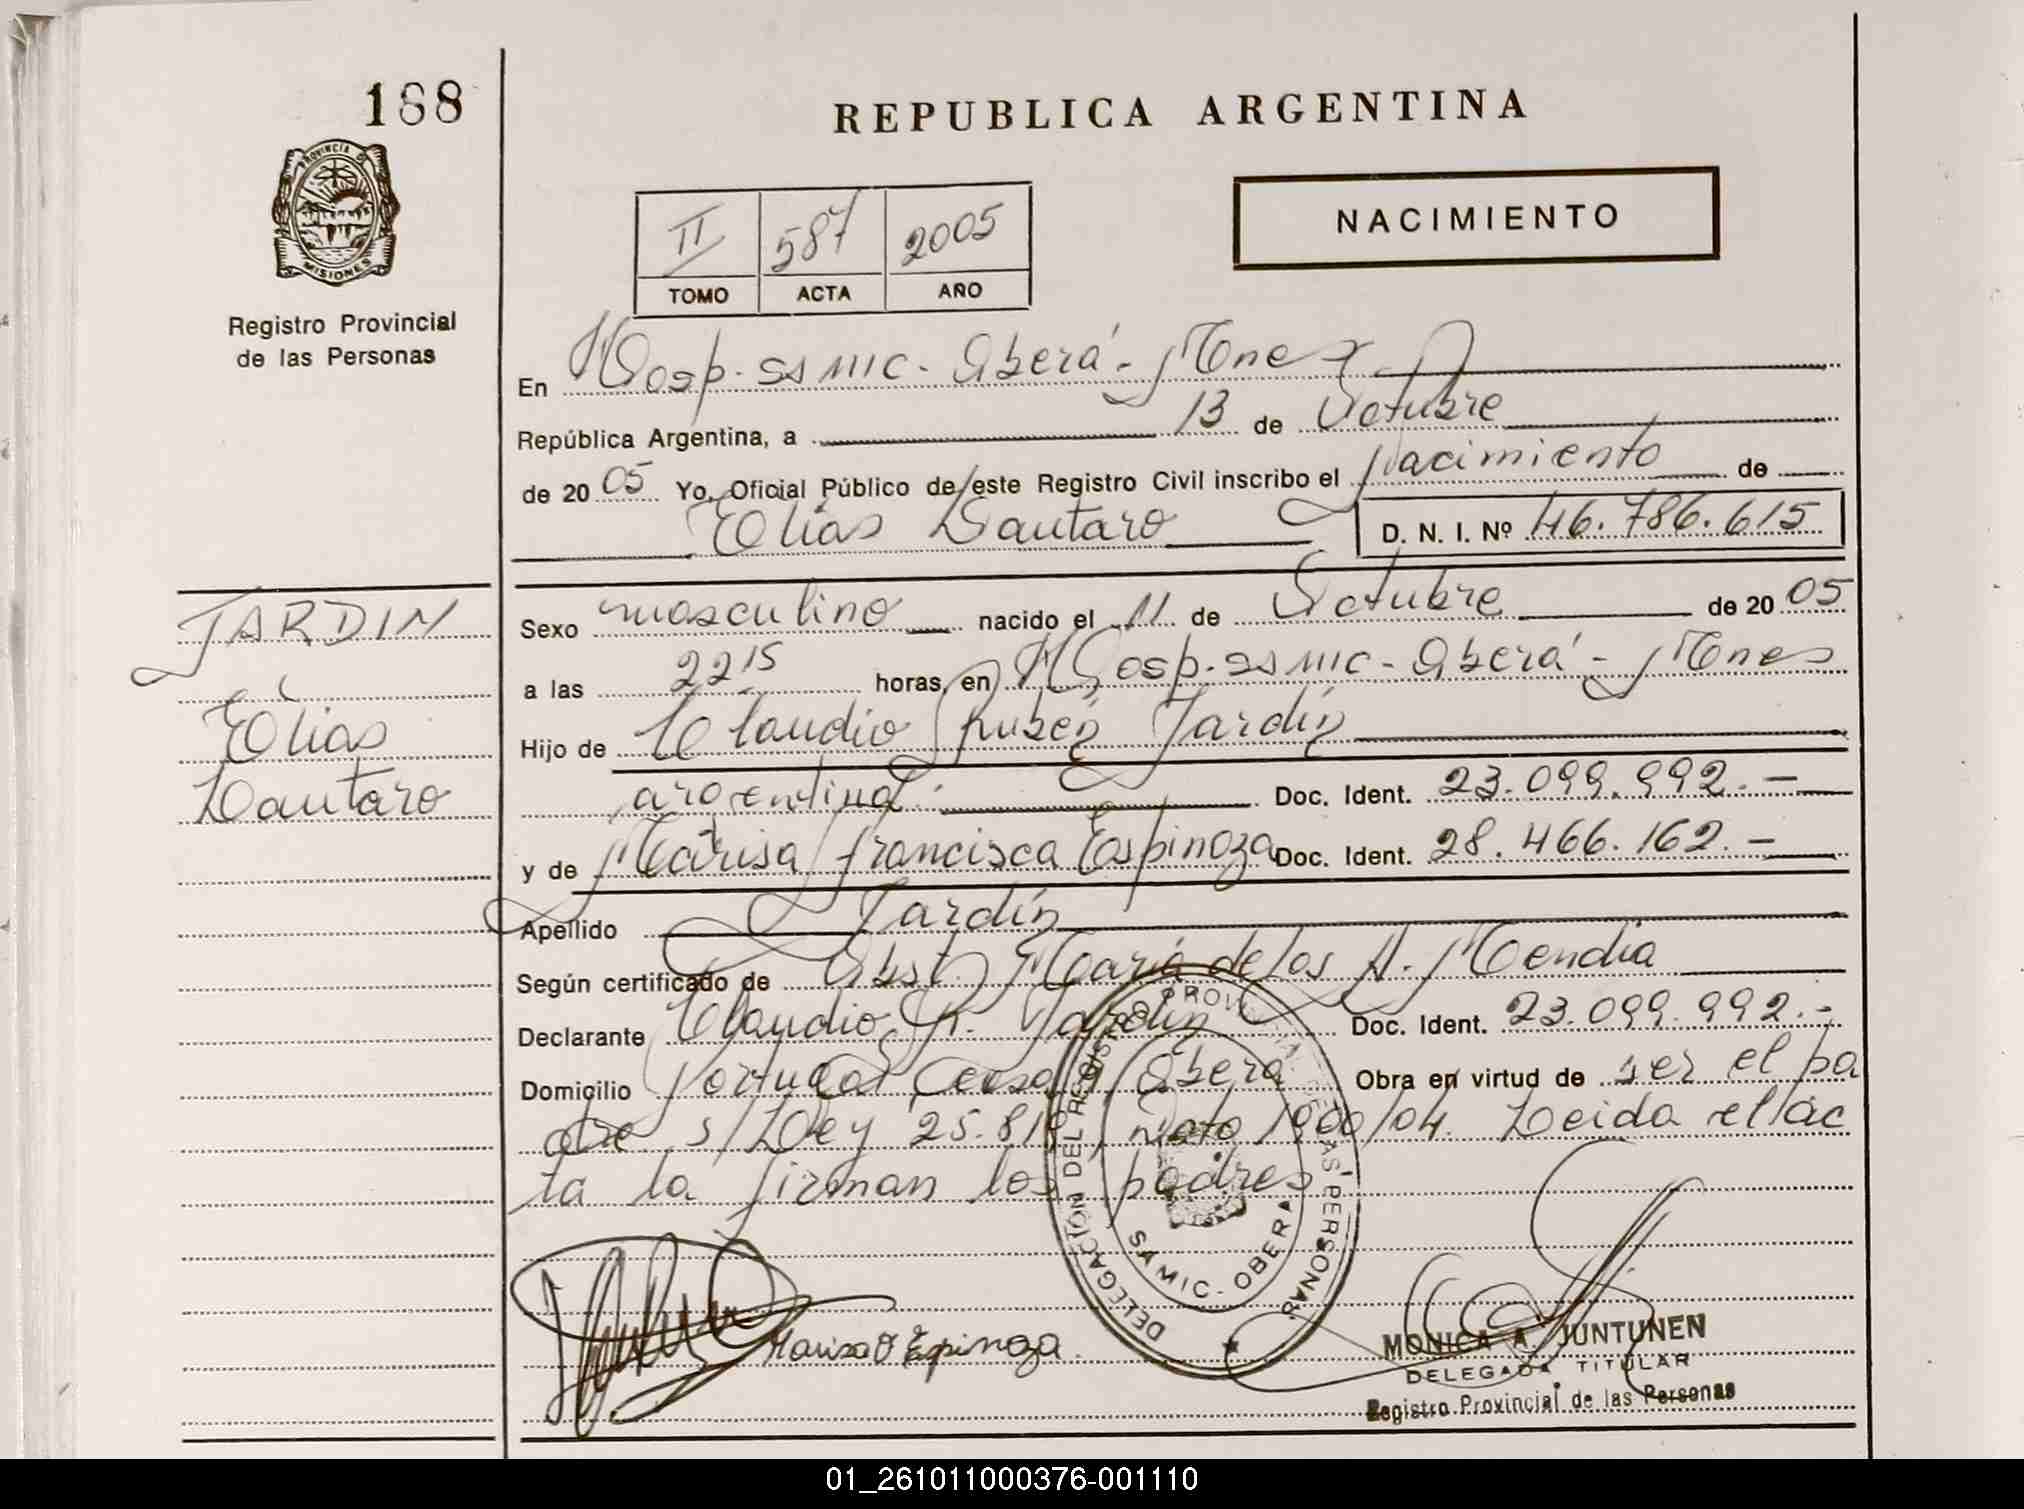 188
REPUBLICA ARGENTINA
PROVINCIA DE
MISIONES
Registro Provincial
de las Personas
II 587 2005
TOMO ACTA AÑO
NACIMIENTO
En Hosp. SAMIC - Oberá - Mnes
República Argentina, a 13 de Octubre
de 20 05 Yo, Oficial Público de este Registro Civil inscribo el Nacimiento de
Elias Lautaro
D. N. I. Nº 46.786.615
JARDIN
Elias
Lautaro
Sexo masculino nacido el 11 de Octubre de 20 05
a las 22 15 horas, en Hosp. SAMIC - Oberá - Mnes
Hijo de Claudio Rubén Jardín
argentina Doc. Ident. 23.099.992.-
y de Marisa Francisca Espinoza Doc. Ident. 28.466.162.-
Apellido Jardín
Según certificado de Obst. María de los A. Mendia
Declarante Claudio R. Jardín Doc. Ident. 23.099.992.-
Domicilio Portugal Oberá Obra en virtud de ser el pa
dre s/Ley 25.819 /04. Leida el ac
ta la firman los padres
DELEGACIÓN DEL REGISTRO PROVINCIAL DE LAS PERSONAS
SAMIC - OBERA
Marisa F Espinoza
MONICA A. JUNTUNEN
DELEGADA TITULAR
Registro Provincial de las Personas
01_261011000376-001110